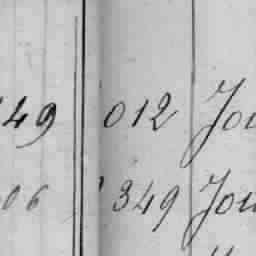 49 012 Jou
06 349 Jou